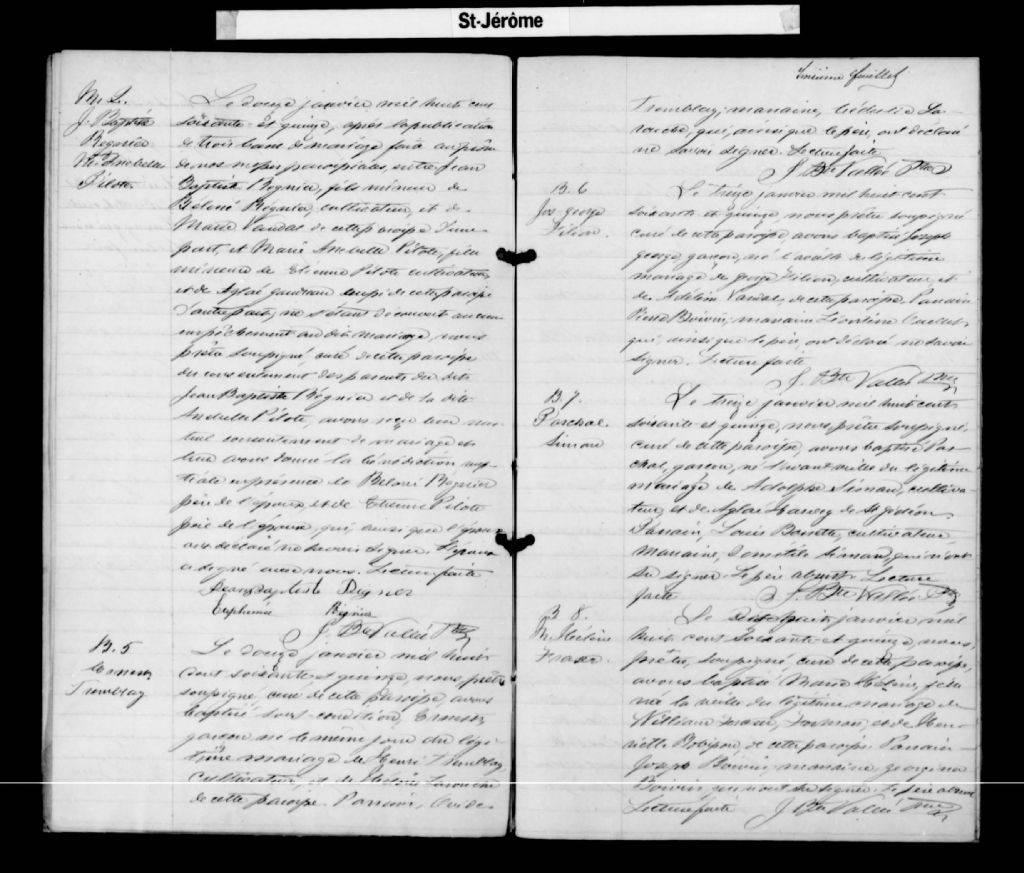 St-Jérôme
M. 2.
J. Baptiste
Régnier
M. Anabella
Pilote
Le douze janvier mil huit cent
soixante et quinze, après la publication
de trois bans de mariage faite au prône
de nos messes paroissiales, entre Jean
Baptiste Régnier, fils mineur de
Béloni Régnier, cultivateur, et de
Marie Vandal de cette paroisse d'une
part, et Marie Anabella Pilote, fille
mineure de Etienne Pilote cultivateur
et de Aglaé Gaudreau aussi de cette paroisse
d'autre part; ne s'étant découvert aucun
empêchement au dit mariage, nous
prêtre soussigné, curé de cette paroisse
du consentement des parents du dit
Jean Baptiste Régnier et de la dite
Anabella Pilote, avons reçu leur mu-
tuel consentement de mariage et
leur avons donné la bénédiction nup-
tiale en présence de Béloni Régnier
père de l'époux, et de Etienne Pilote
père de l'épouse, qui, ainsi que l'époux
ont déclaré ne savoir signer. L'épouse
a signé avec nous. Lecture faite
Jean Baptiste Regner
Euphémie Régnier
J. Bte Vallée Ptre
B. 5
Ernest
Tremblay
Le douze janvier mil huit
cent soixante et quinze, nous, prêtre
soussigné, curé de cette paroisse, avons
baptisé sous condition, Ernest,
garçon né le même jour du légi-
time mariage de Henri Tremblay
cultivateur, et de Larouche
de cette paroisse. Parrain,
troisième feuillet
Tremblay; marraine, La-
rouche, qui, ainsi que le père, ont déclaré
ne savoir signer. Lecture faite
J. Bte Vallée Ptre
B. 6
Jos. George
Filion.
Le treize janvier mil huit cent
soixante et quinze, nous prêtre soussigné
curé de cette paroisse, avons baptisé Joseph
George garçon, né du légitime
mariage de George Filion, cultivateur, et
de Adéline Vandal, de cette paroisse. Parrain
Pierre Boivin; marraine Léontine Ouellet
qui, ainsi que le père, ont déclaré ne savoir
signer. Lecture faite
J. Bte Vallée Ptre
B. 7.
Paschal
Simard
Le treize janvier mil huit cent
soixante et quinze, nous prêtre soussigné
curé de cette paroisse, avons baptisé Pas-
chal, garçon, né l'avant veille du légitime
mariage de Adolphe Simard, cultiva-
teur, et de Aglaé Harvey de St Gédéon.
Parrain, Louis cultivateur,
marraine, Domithilde Simard, qui n'ont
su signer. Le père absent. Lecture
faite J. Bte Vallée Ptre
B 8.
M. Hélène
Fraser.
Le dix huit janvier mil
huit cent soixante et quinze, nous,
prêtre, soussigné, curé de cette paroisse,
avons baptisé Marie Hélène, fille
née la veille du légitime mariage de
William Fraser, et de Hen-
riette Robipon, de cette paroisse. Parrain
Joseph Boivin; marraine, Georgina
Boivin qui n'ont su signer. Le père absent
Lecture faite J. Bte Vallée Ptre